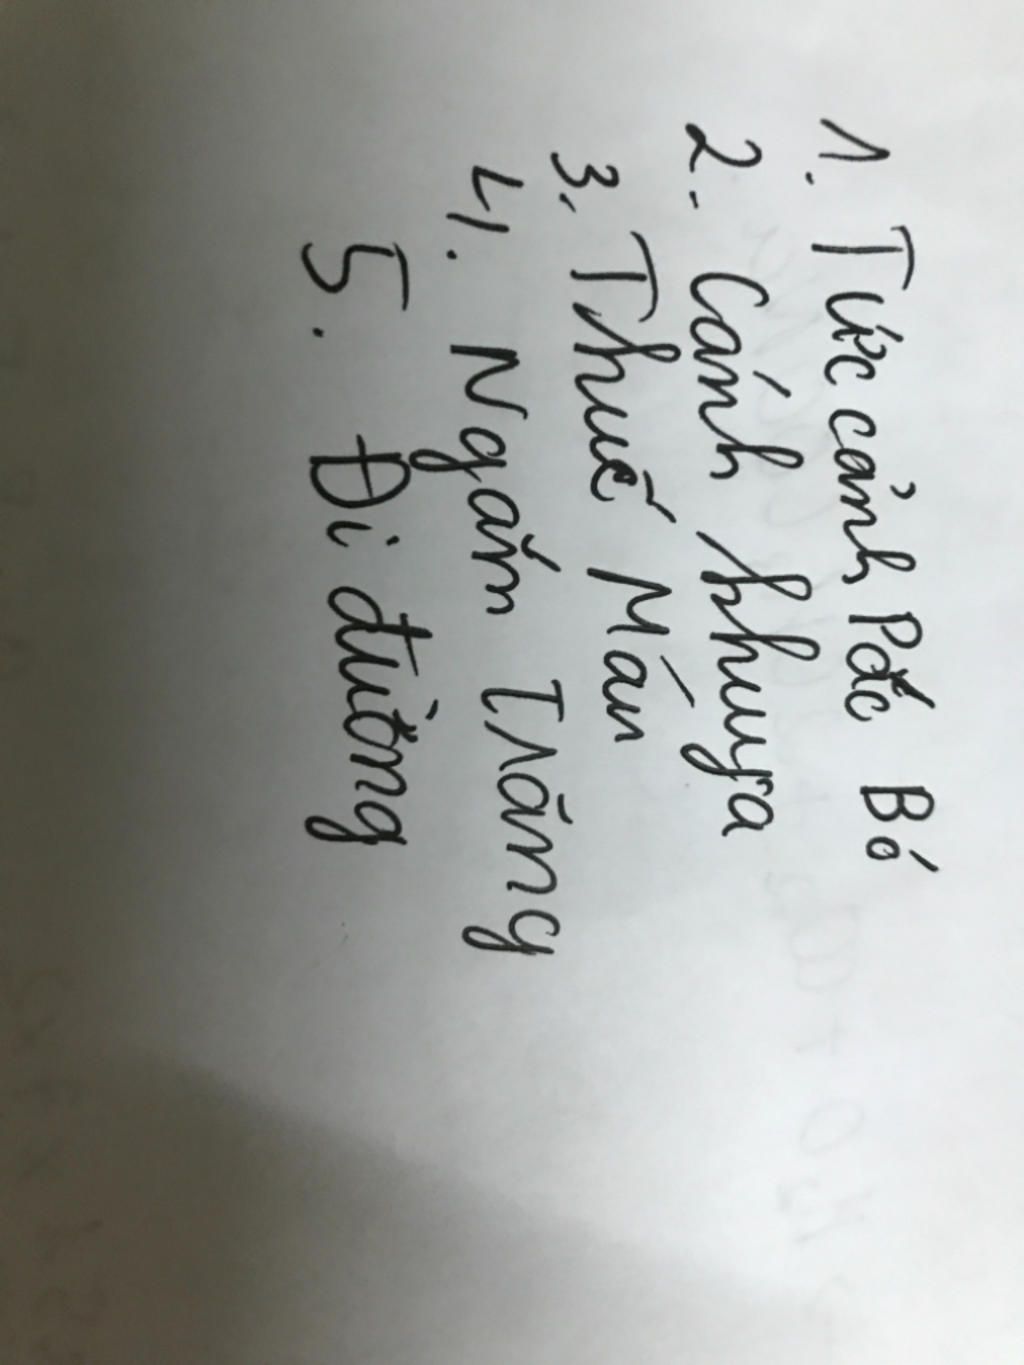 1. Tức cảnh Pắc Bó
2. Cánh khuya
3. Thuế Máu
4. Ngắm Trăng
5. Đi đường